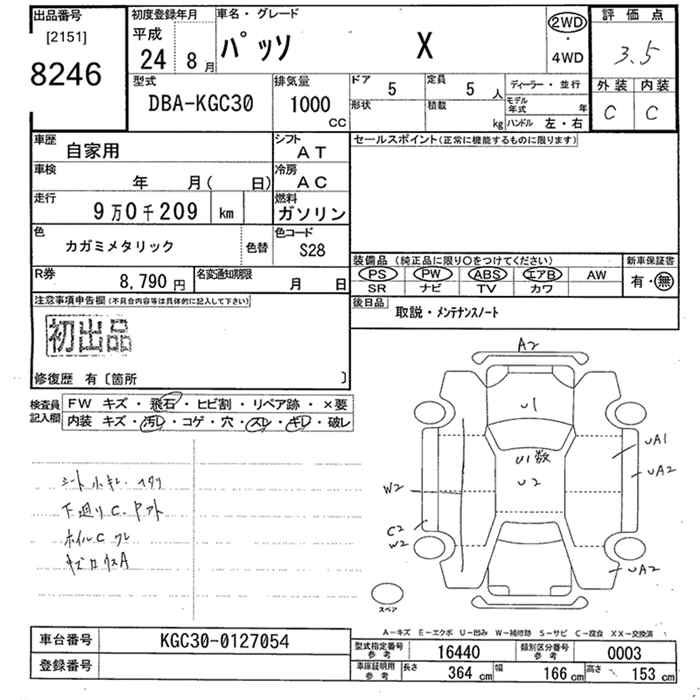 出品番号 初度登録年月 車名・グレード 評価点
[2151] 平成 2WD
8246 24 年 8月 パッソ X ・ 3.5
4WD
型式 排気量 ドア 5 定員 5 人 ディーラー・並行 外装 内装
DBA-KGC30 1000 cc 形状 積載 kg モデル年式 年 C C
ハンドル 左・右
車歴 自家用 シフト AT セールスポイント(正常に機能するものに限ります)
車検 年 月( 日) 冷房 AC
走行 9万0千209 km 燃料 ガソリン
色 カガミメタリック 色替 色コード S28
装備品 (純正品に限り〇をつけてください) 新車保証書
R券 8,790 円 名変通知期限 月 日 PS PW ABS エアB AW 有・無
SR ナビ TV カワ
注意事項申告欄(不具合内容等は具体的に記入して下さい) 後日品 取説・メンテナンスノート
初出品
修復歴 有〔箇所 〕
検査員記入欄 FW キズ・飛石・ヒビ割・リペア跡・×要
内装 キズ・汚レ・コゲ・穴・スレ・キレ・破レ
A2
U1
U1数
U2
UA1
UA2
W2
C2
W2
UA2
下廻りC.
ホイルC
スペア
A-キズ E-エクボ U-凹み W-補修跡 S-サビ C-腐食 XX-交換済
車台番号 KGC30-0127054
登録番号
型式指定番号参考 16440 類別区分番号参考 0003
車庫証明用参考 長さ 364 cm 幅 166 cm 高さ 153 cm